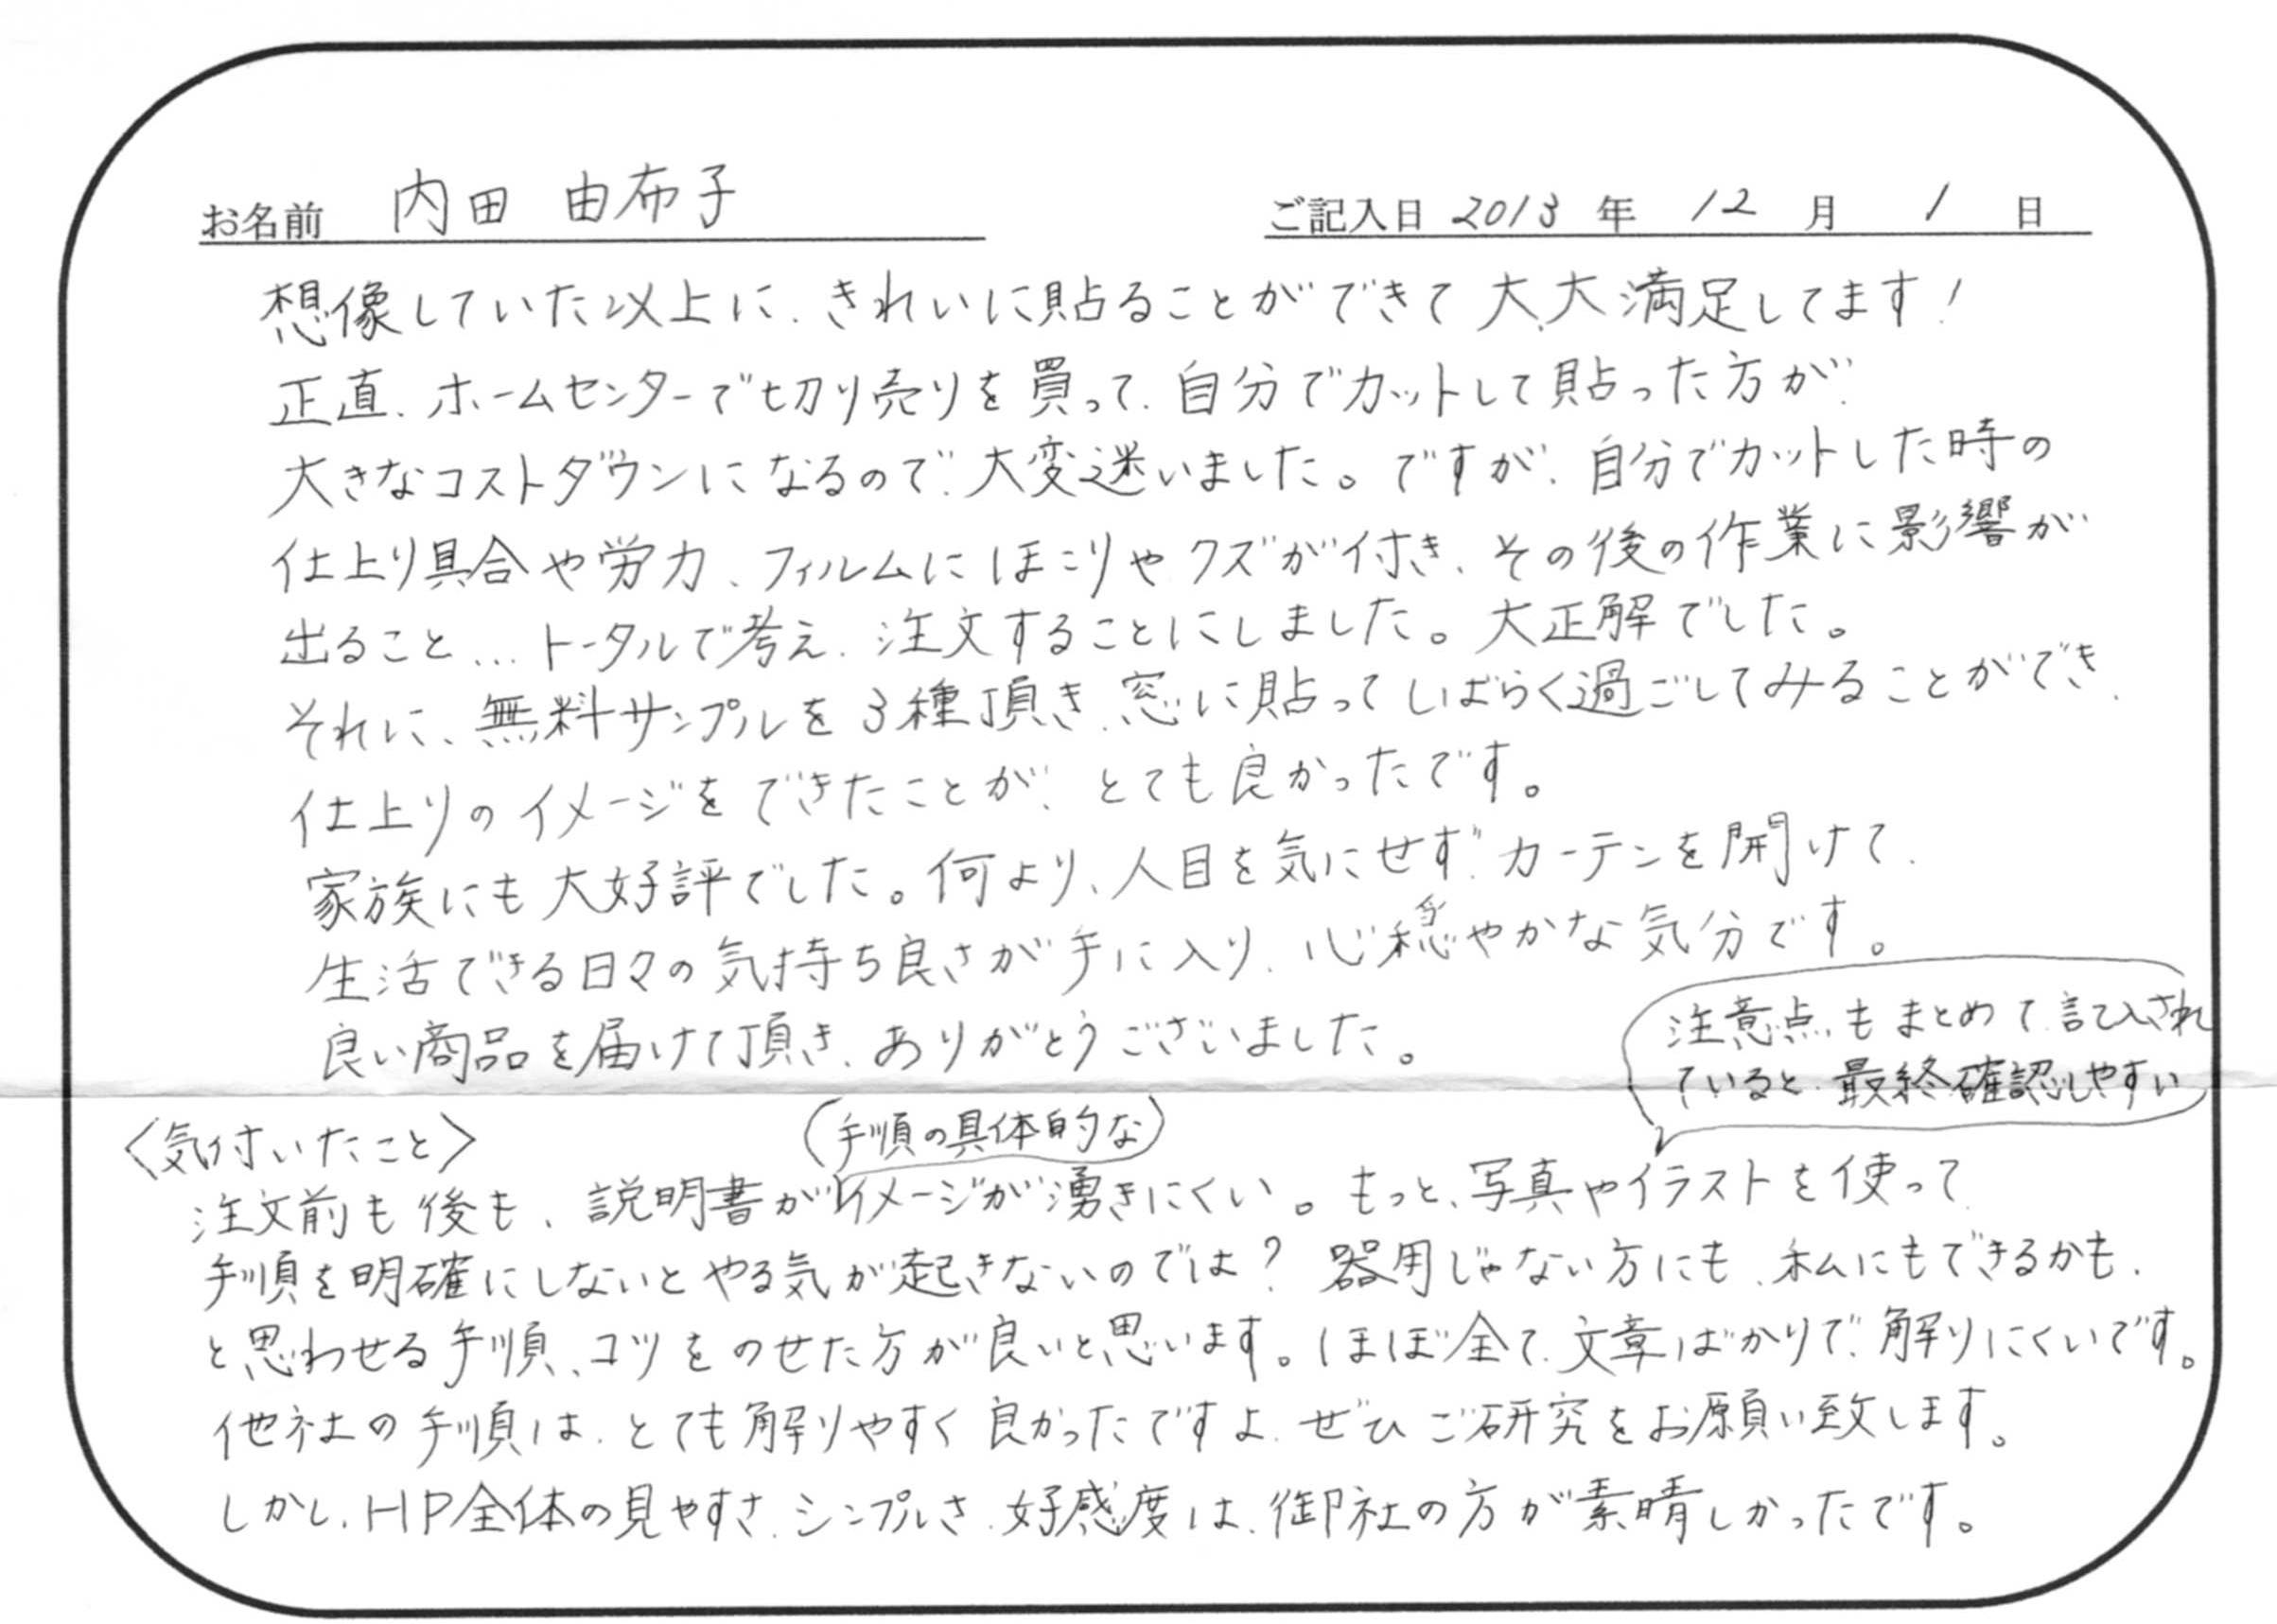 お名前 内田 由布子 ご記入日 2013 年 12 月 1 日
想像していた以上に、きれいに貼ることができて大、大満足してます!
正直、ホームセンターで切り売りを買って、自分でカットして貼った方が、
大きなコストダウンになるので、大変迷いました。ですが、自分でカットした時の
仕上り具合や労力、フィルムにほこりやクズが付き、その後の作業に影響が
出ること…トータルで考え、注文することにしました。大正解でした。
それに、無料サンプルを3種頂き、窓に貼ってしばらく過ごしてみることができ、
仕上りのイメージをできたことが、とても良かったです。
家族にも大好評でした。何より、人目を気にせず、カーテンを開けて、
生活できる日々の気持ち良さが手に入り、心穏やかな気分です。
良い商品を届けて頂き、ありがとうございました。
注意点もまとめて記入され
ていると、最終確認しやすい
〈気付いたこと〉
(手順の具体的な)
注文前も後も、説明書がイメージが湧きにくい。もっと、写真やイラストを使って、
手順を明確にしないとやる気が起きないのでは?器用じゃない方にも、私にもできるかも、
と思わせる手順、コツをのせた方が良いと思います。ほぼ全て、文章ばかりで、解りにくいです。
他社の手順は、とても解りやすく良かったですよ、ぜひご研究をお願い致します。
しかし、HP全体の見やすさ、シンプルさ、好感度は、御社の方が素晴しかったです。